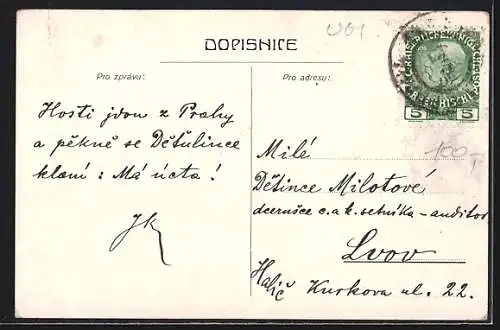 U01
DOPISNICE
Pro zprávu:
Pro adresu:
5 5
100
Hosti jdou z Prahy
a pěkně se Dětulince
klaní: Má úcta!
JK
Milé
Dětince Milotové
dcerušce c. a k. setníka-auditora
Lvov
Halič Kurkova ul. 22.